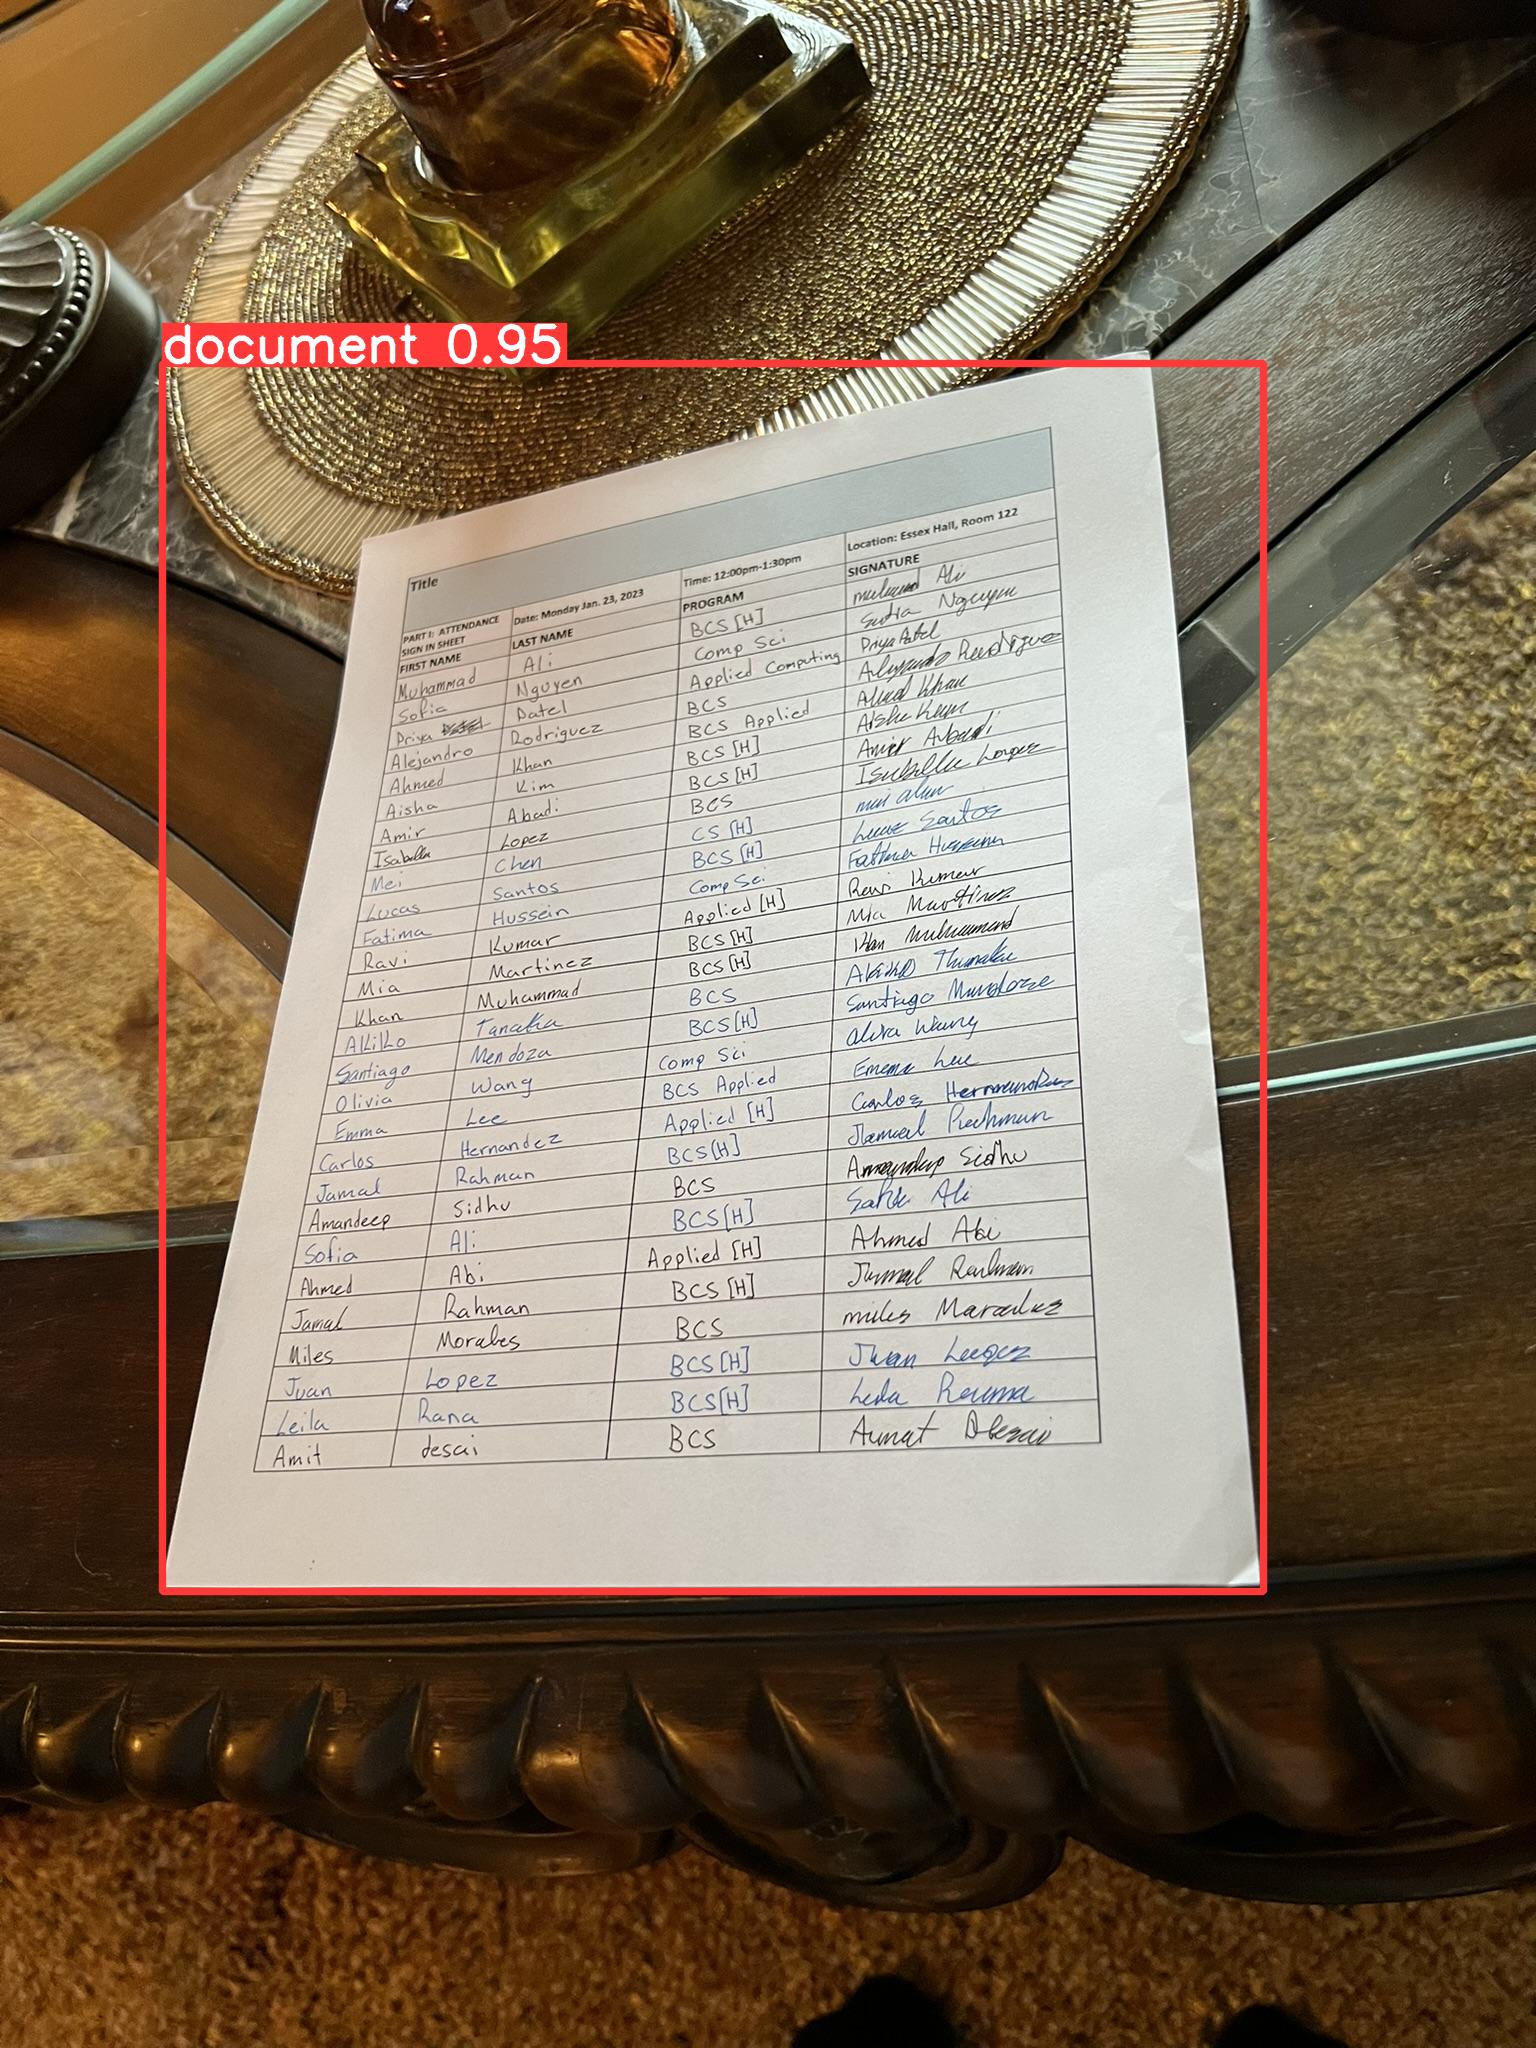 document 0.95
Title
PART I: ATTENDANCE SIGN IN SHEET Date: Monday Jan. 23, 2023 Time: 12:00pm-1:30pm Location: Essex Hall, Room 122
FIRST NAME LAST NAME PROGRAM SIGNATURE
Muhammad Ali BCS [H] Ali
Sofia Nguyen Comp Sci Nguyen
Priya Patel Applied Computing Priya Patel
Alejandro Rodriguez BCS Alejandro Rodriguez
Ahmed Khan BCS Applied Ahmed Khan
Aisha Kim BCS [H] Aisha Kim
Amir Abadi BCS [H] Amir Abadi
Isabella Lopez BCS Isabella Lopez
Mei Chen CS [H]
Lucas Santos BCS [H] Lucas Santos
Fatima Hussein Comp Sci Fatima Hussein
Ravi Kumar Applied [H] Ravi Kumar
Mia Martinez BCS [H] Mia Martinez
Khan Muhammad BCS [H] Khan Muhammad
Akiko Tanaka BCS
Santiago Mendoza BCS [H] Santiago Mendoza
Olivia Wang Comp Sci Olivia Wang
Emma Lee BCS Applied Emma Lee
Carlos Hernandez Applied [H] Carlos Hernandez
Jamal Rahman BCS [H] Jamal Rahman
Amandeep Sidhu BCS Amandeep Sidhu
Sofia Ali BCS [H] Ali
Ahmed Abi Applied [H] Ahmed Abi
Jamal Rahman BCS [H] Jamal Rahman
Miles Morales BCS miles
Juan Lopez BCS [H] Juan
Leila Rana BCS [H]
Amit desai BCS